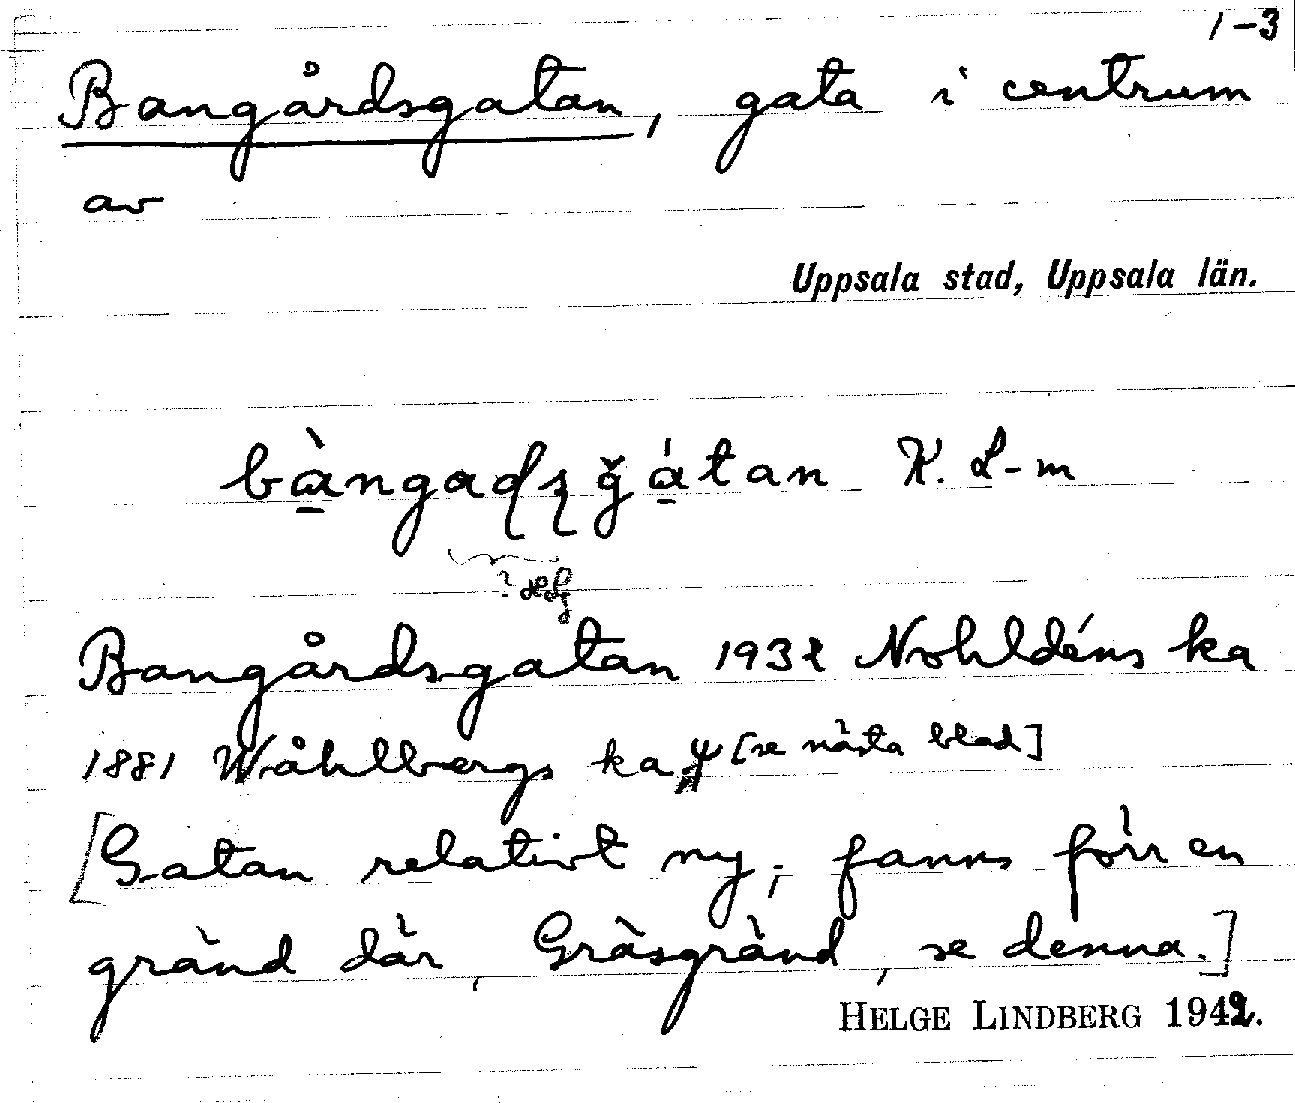 1-3
Bangårdsgatan, gata i centrum
av
Uppsala stad, Uppsala län.
K. L-m
Bangårdsgatan 1932 Nohldéns ka
1881 Wåhlbergs ka [se nästa blad]
[Gatan relativt ny; fanns förr en
gränd där, Gräsgränd, se denna.]
HELGE LINDBERG 1942.